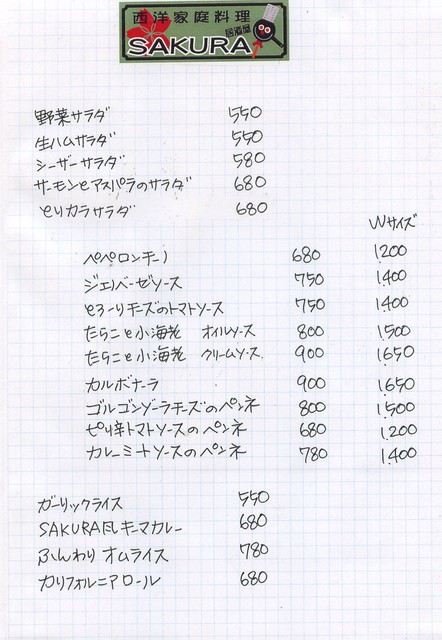 西洋家庭料理
居酒屋
SAKURA
野菜サラダ 550
生ハムサラダ 550
シーザーサラダ 580
サーモンとアスパラのサラダ 680
とりカラサラダ 680
Wサイズ
ペペロンチーノ 680 1.200
ジェノバーゼソース 750 1.400
とろーりチーズのトマトソース 750 1.400
たらこと小海老 オイルソース 800 1.500
たらこと小海老 クリームソース 900 1.650
カルボナーラ 900 1.650
ゴルゴンゾーラチーズのペンネ 800 1.500
ピリ辛トマトソースのペンネ 680 1.200
カレーミートソースのペンネ 780 1.400
ガーリックライス 550
SAKURA風キーマカレー 680
ふんわりオムライス 780
カリフォルニアロール 680